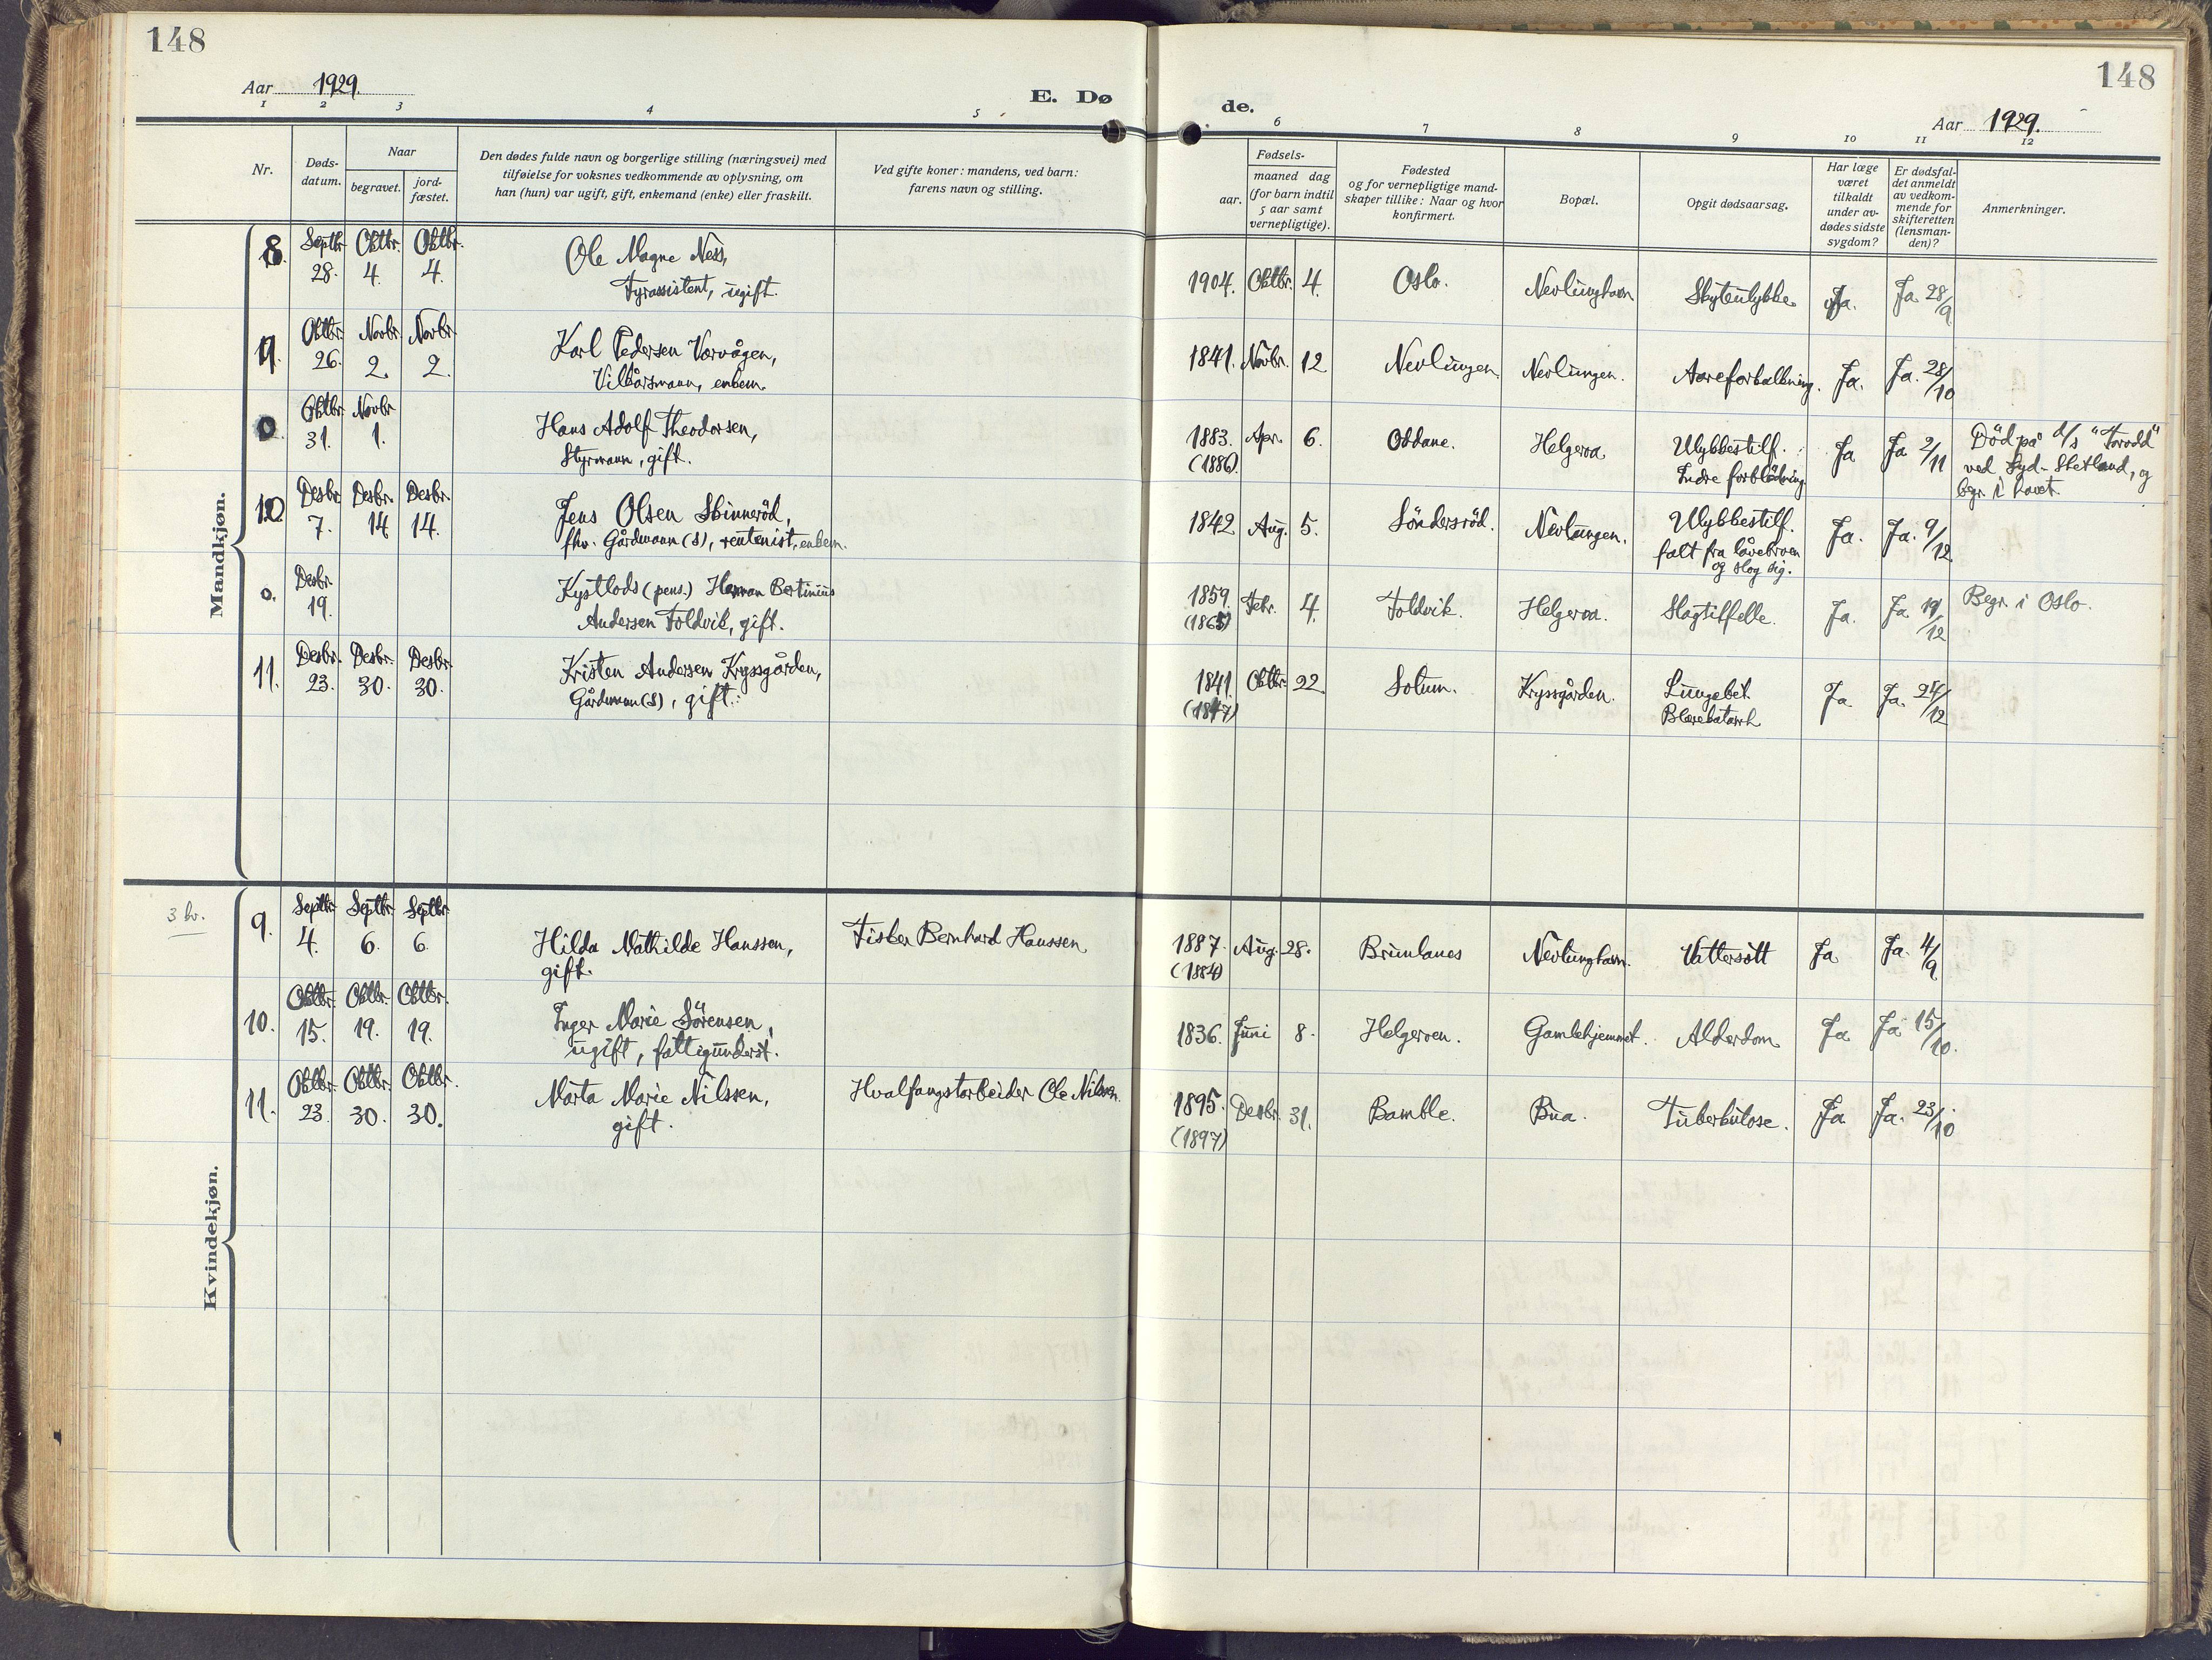 148
Aar 1929.
E. Dø
1 2 3 4 5
Nr.
Døds-
datum.
Naar
begravet.
jord-
fæstet.
Den dødes fulde navn og borgerlige stilling (næringsvei) med
tilføielse for voksnes vedkommende av oplysning, om
han (hun) var ugift, gift, enkemand (enke) eller fraskilt.
Ved gifte koner: mandens, ved barn:
farens navn og stilling.
148
de.
Aar 1929.
6 7 8 9 10 11 12
Fødsels-
aar.
maaned dag
(for barn indtil
5 aar samt
vernepligtige).
Fødested
og for vernepligtige mand-
skaper tillike: Naar og hvor
konfirmert.
Bopæl.
Opgit dødsaarsag.
Har læge
været
tilkaldt
under av-
dødes sidste
sygdom?
Er dødsfal-
det anmeldt
av vedkom-
mende for
skifteretten
(lensman-
den)?
Anmerkninger.
Mandkjøn.
8. Septbr. 28. Oktbr. 4. Oktbr. 4. Ole Magne Ness,
Fyrassistent, ugift.
1904. Oktbr. 4. Oslo. Nevlunghavn Skyteulykke. Ja. Ja 28/9
9. Oktbr. 26. Novbr. 2. Novbr. 2. Karl Pedersen Vorvågen,
Vilkårsmann, enkem.
1841. Novbr. 12 Nevlungen. Nevlungen. Aareforkalkning. Ja. Ja. 28/10
0. Oktbr. 31. Novbr. 1. Hans Adolf Theodorsen,
Styrmann, gift.
1883. (1886). Apr. 6. Oddane. Helgeroa. Ulykkestilf.
Indre forblödning. Ja Ja 2/11 Död på d/s "Torodd"
ved Syd-Shetland, og
begr. i havet.
10. Desbr. 7. Desbr. 14. Desbr. 14. Jens Olsen Skinneröd,
fhv. Gårdmann (S), rentenist, enkem.
1842 Aug. 5. Söndersröd. Nevlungen. Ulykkestilf.
falt fra låvebroen
og slog sig. Ja. Ja. 9/12
0. Desbr. 19. Kystlods (pens.) Herman Bertinius
Andersen Foldvik, gift.
1859. (1865) Febr. 4. Foldvik. Helgeroa. Slagtilfelle. Ja. Ja 19/12 Begr. i Oslo.
11. Desbr. 23. Desbr. 30. Desbr. 30. Kristen Andersen Kryssgården,
Gårdmann (S), gift.
1841. (1847) Oktbr. 22. Solum. Kryssgården. Lungebet.
Blærekatarrh Ja Ja. 24/12
Kvindekjøn.
3 kv.
9. Septbr. 4. Septbr. 6. Septbr. 6. Hilda Mathilde Hanssen,
gift. Fisker Bernhard Hanssen
1887. (1884) Aug. 28. Brunlanes Nevlunghavn. Vattersott Ja Ja. 4/9
10. Oktbr. 15. Oktbr. 19. Oktbr. 19. Inger Marie Sörensen,
ugift, fattigunderst.
1836. Juni 8. Helgeroen. Gamlehjemmet. Alderdom Ja Ja 15/10.
11. Oktbr. 23. Oktbr. 30. Oktbr. 30. Marta Marie Nilssen,
gift. Hvalfangstarbeider Ole Nilssen.
1895. (1897) Desbr. 31. Bamble. Bua. Tuberkulose. Ja. Ja. 23/10